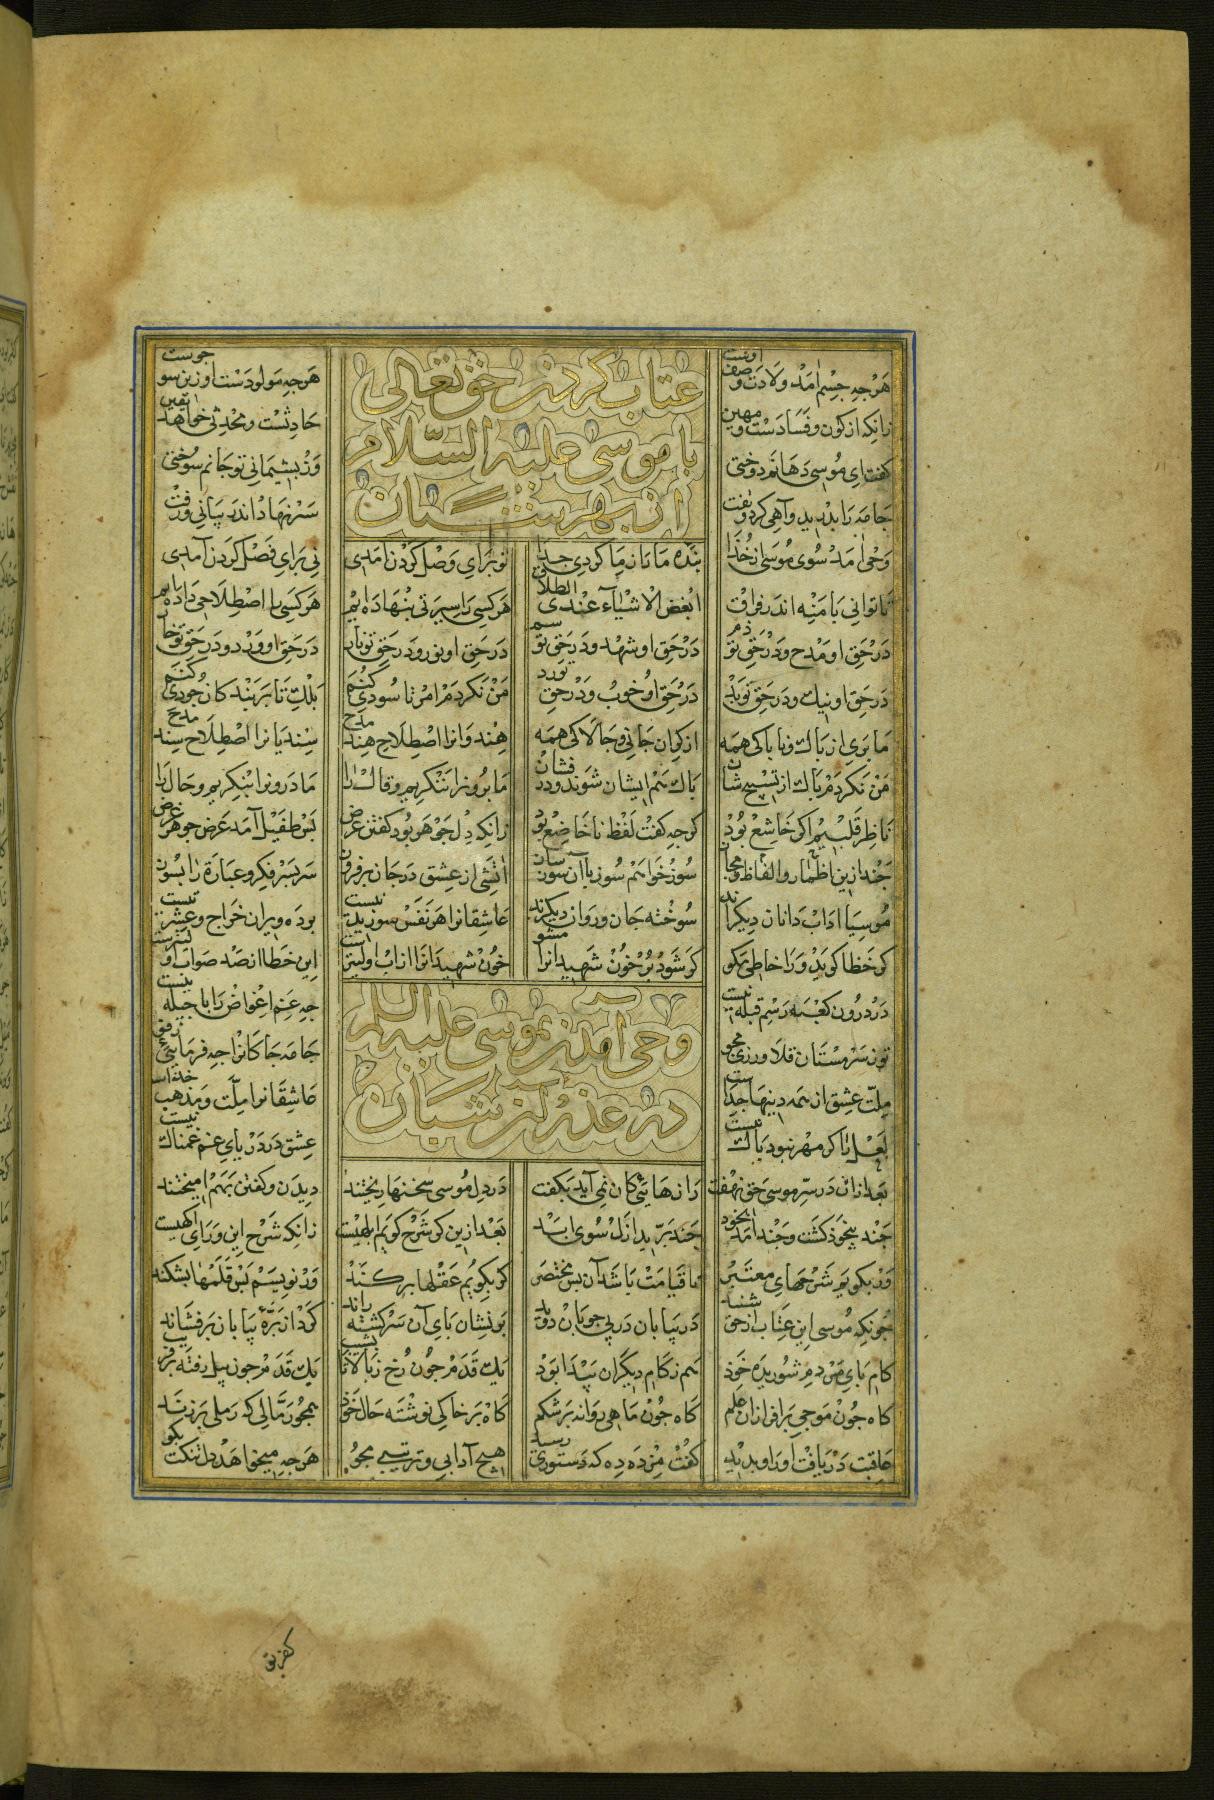 هرچه جسم آمد ولادت وصف اوست هرچه مولودست او زین سو جوست
زانکه از کون و فسادست و مهین حادثست و محدثی خواهد یقین
گفت ای موسی دهانم دوختی وز پشیمانی تو جانم سوختی
جامه را بدرید و آهی کرد و تفت سر نهاد اندر بیابانی و رفت
عتاب کردن حق تعالی
با موسی علیه السلام
از بهر شبان
وحی آمد سوی موسی از خدا بنده ما را ز ما کردی جدا تو برای وصل کردن آمدی نی برای فصل کردن آمدی
تا توانی پا منه اندر فراق ابغض الاشیاء عندی الطلاق هر کسی را سیرتی بنهاده ایم هر کسی را اصطلاحی داده ایم
در حق او مدح و در حق تو ذم در حق او شهد و در حق تو سم در حق او نور و در حق تو نار در حق او ورد و در حق تو خار
در حق او نیک و در حق تو بد در حق او خوب و در حق تو رد من نکردم امر تا سودی کنم بلک تا بر بندکان جودی کنم
ما بری از پاک و ناپاکی همه از کران جانی و چالاکی همه هندوانرا اصطلاح هند مدح سندیانرا اصطلاح سند مدح
من نکردم پاک از تسبیح شان پاک هم ایشان شوند و در فشان ما برونرا ننکریم و قال را ما درونرا بنکریم و حال را
ناظر قلبیم اکر خاشع بود کرچه کفت لفظ ناخاضع بود زانکه دل جوهر بود کفتن عرض پس طفیل آمد عرض جوهر غرض
چند ازین اظمار و الفاظ و مجاز سوز خواهم سوز با آن سوز ساز آتشی از عشق در جان بر فروز سر بسر فکر و عبارة را بسوز
موسیا آداب دانان دیکرند سوخته جان و روانان دیکرند عاشقانرا هر نفس سوزیدنیست بر ده ویران خراج و عشر نیست
کر خطا کوید ورا خاطی مکو کر شود پر خون شهید آنرا مشو خون شهیدانرا از آب اولیترست این خطا از صد صواب اولیترست
در درون کعبه رسم قبله نیست چه غم ار غواص را پاچیله نیست
تو ز سرمستان قلاوزی مجو جامه چاکانرا چه فرمایی رفو
ملت عشق از همه دینها جداست عاشقانرا ملت و مذهب خداست
لعل را کر مهر نبود باک نیست عشق در دریای غم غمناک نیست
وحی آمدن بموسی علیه السلام
در عذر آن شبان
بعد ازان در سر موسی حق نهفت رازهایی کان نمی آید بکفت در دل موسی سخنها ریختند دیدن و کفتن بهم آمیختند
چند بیخود کشت و چند آمد بخود چند پرید از ازل سوی ابد بعد ازین کر شرح کویم ابلهیست زانکه شرح این ورای آکهیست
ور بکویم شرحهای معتبر تا قیامت باشد آن بس مختصر کر بکویم عقلها برکند ور نویسم بس قلمها بشکند
چونکه موسی این عتاب از حق شنید در بیابان در پی چوپان دوید بر نشان پای آن سرکشته راند کرد از پره بیابان بر فشاند
کام پای مردم شوریده خود هم ز کام دیکران پیدا بود یک قدم چون رخ ز بالا تا نشیب یک قدم چون پیل رفته بر وریب
کاه چون موجی برافرازان علم کاه چون ماهی روانه بر شکم کاه بر خاکی نوشته حال خود همچو رمالی که رملی بر زند
عاقبت دریافت او را و بدید کفت مژده ده که دستوری رسید هیچ آدابی و ترتیبی مجو هرچه میخواهد دل تنکت بکو
کفر تو